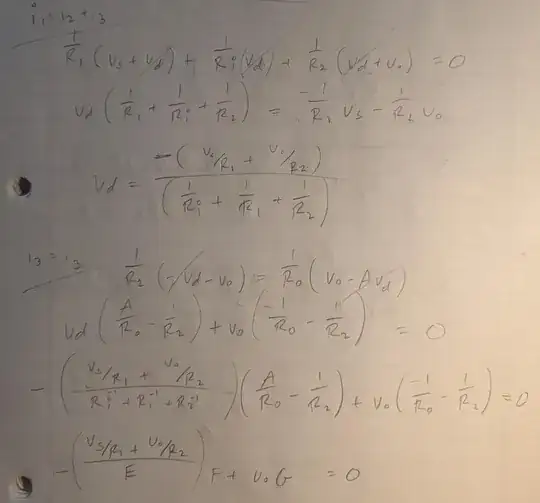 i₁ = i₂ + i₃
1/R₁ (Vs + Vd) + 1/Ri (Vd) + 1/R₂ (Vd + Vo) = 0
Vd (1/R₁ + 1/Ri + 1/R₂) = -1/R₁ Vs - 1/R₂ Vo
Vd = -(Vs/R₁ + Vo/R₂) / (1/Ri + 1/R₁ + 1/R₂)
i₃ = i₃
1/R₂ (-Vd - Vo) = 1/Ro (Vo - AVd)
Vd (A/Ro - 1/R₂) + Vo (-1/Ro - 1/R₂) = 0
-((Vs/R₁ + Vo/R₂) / (Ri⁻¹ + R₁⁻¹ + R₂⁻¹)) (A/Ro - 1/R₂) + Vo (-1/Ro - 1/R₂) = 0
-((Vs/R₁ + Vo/R₂) / E) F + Vo G = 0